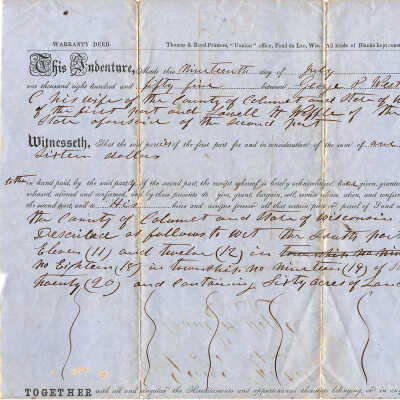 WARRANTY DEED. Thomas & Reed Printers, "Union" office, Fond du Lac, Wis. All kinds of Blanks kept cons
This Indenture, Made this Nineteenth day of July
one thousand eight hundred and fifty five between George P
his wife of the County of Calumet and State of W
of the first part and Lovell H of the
State aforesaid of the second part
Witnesseth, That the said parties of the first part for and in consideration of the sum of one
Sixteen dollars
to them in hand paid, by the said party of the second part, the receipt whereof is hereby acknowledged, have given, granted
released, aliened and confirmed, and by these presents do give, grant, bargain, sell, remise, alien, and confirm
the second part, and to His heirs and assigns forever all that certain piece or parcel of Land
the County of Calumet and State of Wisconsin
Described as follows to wit the South par
Eleven (11) and twelve (12) in township no nin
no Eighteen (18) in township no nineteen (19) of
twenty (20) and containing Sixty acres of Land
TOGETHER with all and singular the Hereditaments and appurtenances thereunto belonging, or in any